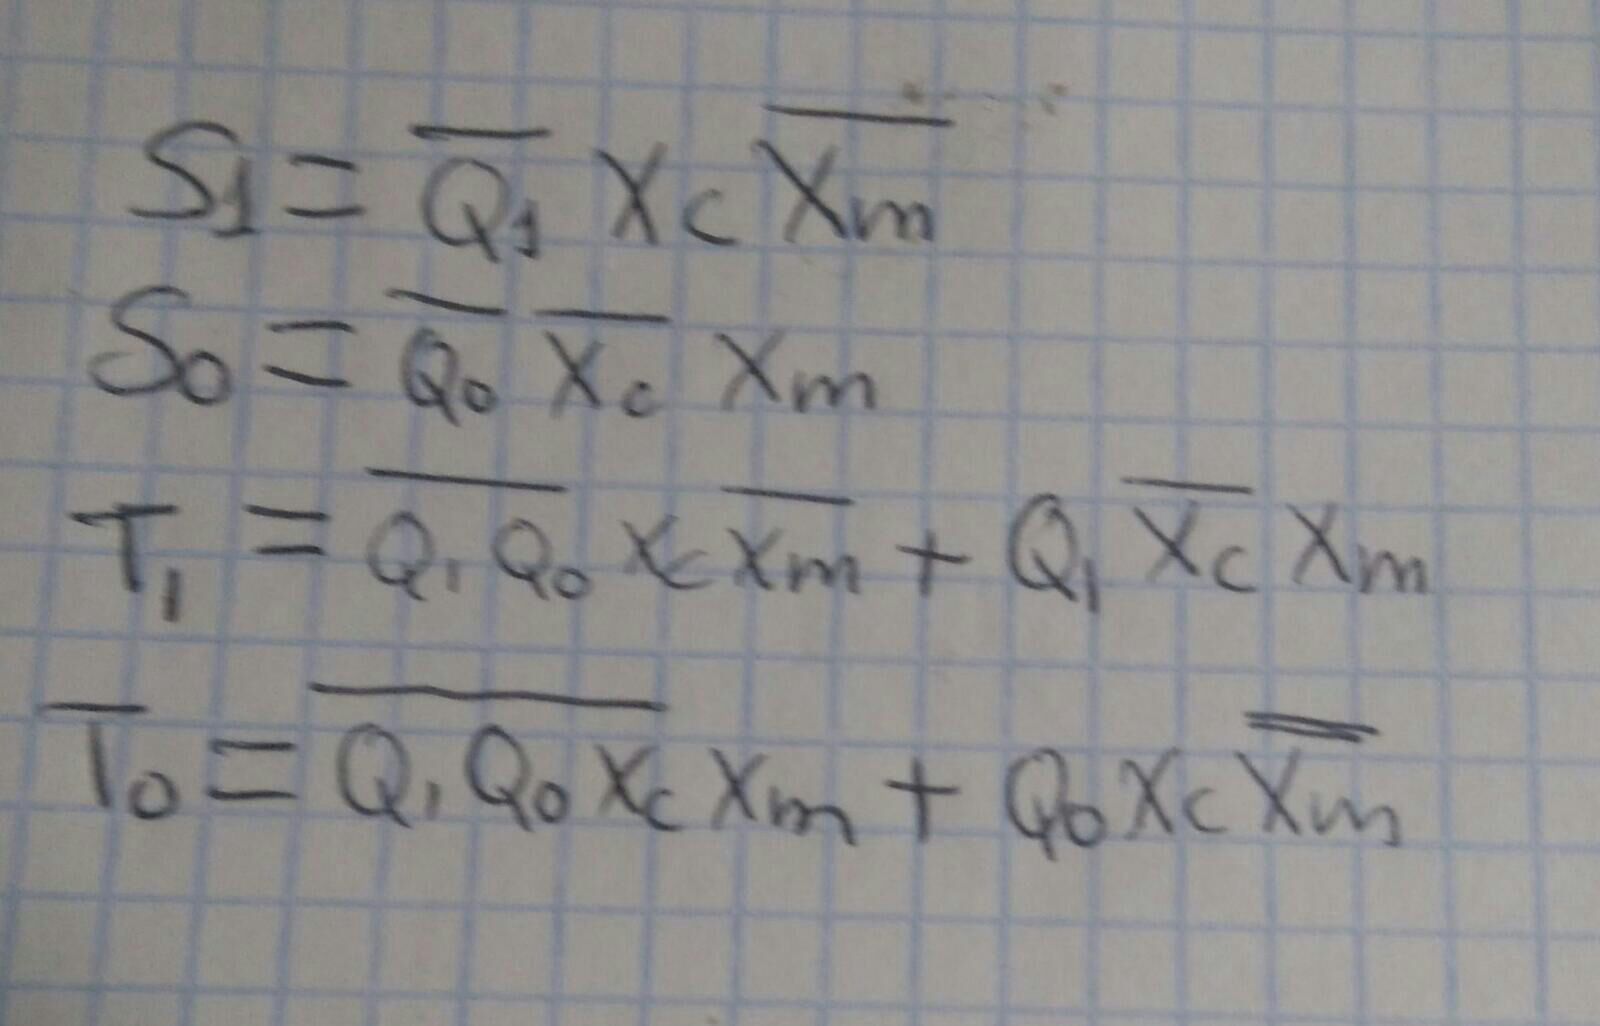 S₁ = Q̅₁ X_C X̅_m
S₀ = Q̅₀ X̅_C X_m
T₁ = \overline{Q₁ Q₀} X_C X̅_m + Q₁ X̅_C X_m
T₀ = \overline{Q₁ Q₀ X_C} X_m + Q₀ X_C X̅_m